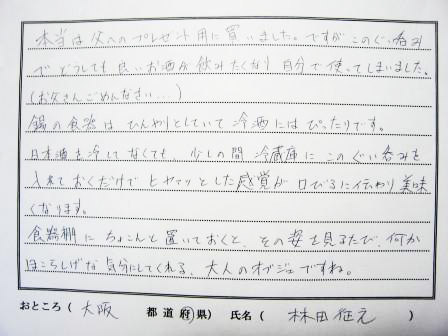 本当は父へのプレゼント用に買いました。ですがこのぐい呑み
でどうしても良いお酒が飲みたくなり自分で使ってしまいました。
(お父さんごめんなさい…)
錫の食器はひんやりとしていて冷酒にはぴったりです。
日本酒を冷してなくても、少しの間冷蔵庫にこのぐい呑みを
入れておくだけでヒヤッとした感覚が口びるに伝わり美味
くなります。
食器棚にちょこんと置いておくと、その姿を見るたび、何か
ほこらしげな気分にしてくれる、大人のオブジェですね。
おところ( 大阪 都道府県) 氏名( 林田 )